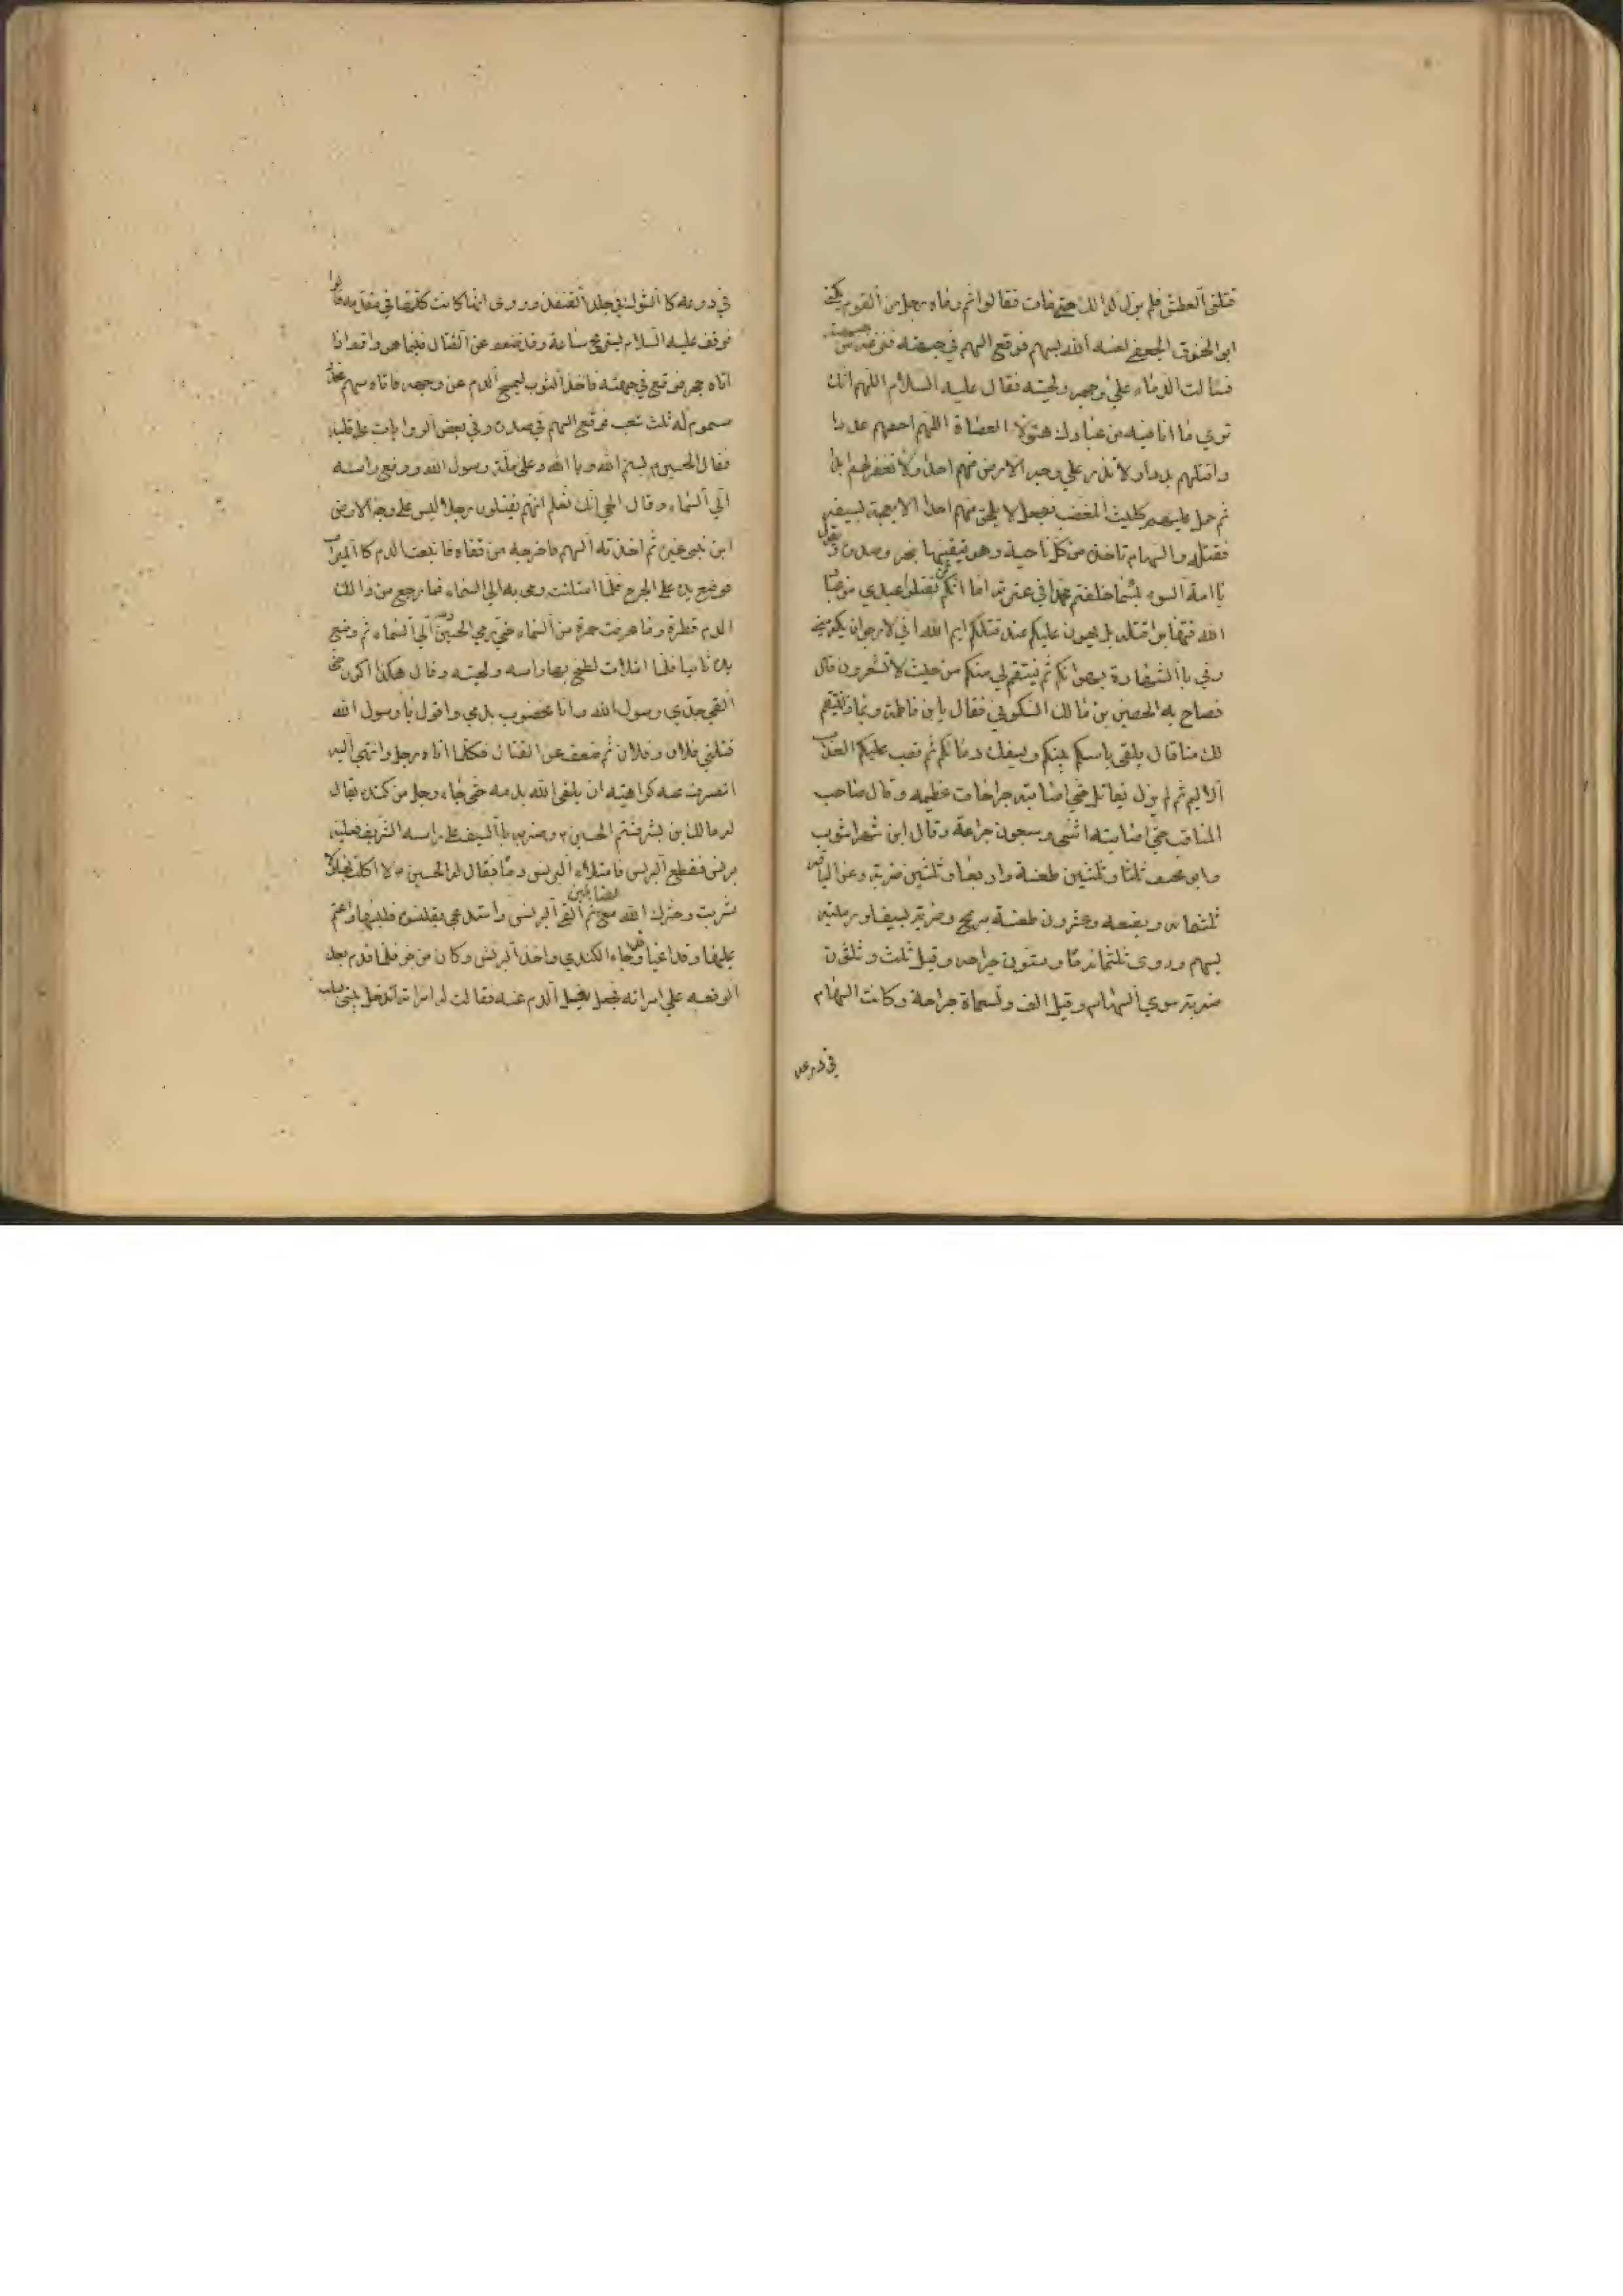 قتلني العطش فلم يزل كذالك حتي مات فقالوا ثم رماه رجل من القوم يكني
ابو الحنوق الجعفي لعنه الله بسهم فوقع السهم في جبهته فنزعه من جبهته
فسالت الدماء علي وجهه ولحيته فقال عليه السلام اللهم انك
تري ما انا فيه من عبادك هؤلاء العصاة اللهم احصهم عددا
واقتلهم بددا ولا تذر علي وجه الارض منهم احدا ولا تغفر لهم ابدا
ثم حمل عليهم كليث المغضب فجعل لا يلحق منهم احدا الا بعجه بسيفه
فقتله والسهام تاخذه من كل ناحية وهو يتقيها بنحره وصدره ويقول
يا امة السوء بئسما خلفتم محمدا في عترته اما انكم لن تقتلوا عبدي من عباد
الله فتهابوا قتله بل يهون عليكم عند قتلكم ايم الله اني لارجو ان يكرمني
ربي بالشهادة بهوانكم ثم ينتقم لي منكم من حيث لا تشعرون قال
فصاح به الحصين بن مالك السكوني فقال يابن فاطمة وبماذا ينتقم
لك منا قال يلقي باسكم بينكم ويسفك دمائكم ثم تصب عليكم العذاب
الاليم ثم لم يزل يقاتل حتي اصابته جراحات عظيمه وقال صاحب
المناقب حتي اصابته اثني وسبعون جراحة وقال ابن شهراشوب
وابو مخنف ثلثا وثلثين طعنة واربعا وثلثين ضربة وعن الباقر
ثلثمائه وبضعه وعشرون طعنة برمح وضربة بسيف ورمية
بسهم وروي ثلثمائة وستون جراحه وقيل ثلث وثلثون
ضربة سوي السهام وقيل الف وتسعماة جراحة وكانت السهام
في درعه
في درعه كالشوك في جلد القنفذ وروي انها كانت كلها في مقدمه قالوا
فوقف عليه السلام يستريح ساعة وقد ضعف عن القتال فبينما هو واقف اذا
اتاه حجر فوقع في جبهته فاخذ الثوب ليمسح الدم عن وجهه فاتاه سهم محدد
مسموم له ثلث شعب فوقع السهم في صدره وفي بعض الروايات علي قلبه
فقال الحسين بسم الله وبالله وعلي ملة رسول الله ورفع راسه
الي السماء وقال الهي انك تعلم انهم يقتلون رجلا ليس علي وجه الارض
ابن نبي غيره ثم اخذ السهم فاخرجه من قفاه فانبعث الدم كالميزاب
فوضع يده علي الجرح فلما امتلئت رمي به الي السماء فما رجع من ذالك
الدم قطرة وما عرفت حمرة من السماء حتي رمي الحسين دمه الي السماء ثم وضع
يده ثانيا فلما امتلات لطخ بها راسه ولحيته وقال هكذا اكون حتي
القي جدي رسول الله وانا مخضوب بدمي واقول يا رسول الله
قتلني فلان وفلان ثم ضعف عن القتال فكلما اتاه رجل وانتهي اليه
انصرف عنه كراهيته ان يلقي الله بدمه حتي جاءه رجل من كنده يقال
له مالك ابن بشر فشتم الحسين وضربه بالسيف علي راسه الشريف وعليه
برنس فقطع البرنس فامتلاء البرنس دما فقال له الحسين لا اكلت بها ولا
شربت وحشرك الله مع الظالمين ثم القي البرنس واستدعي بقلنسوة فلبسها واعتم
عليها وقد اعيا وجاء الكندي واخذ البرنس وكان من خز فلما قدم بعد
الوقعه علي امراته فجعل يغسل الدم عنه فقالت له امراته اتدخل بيتي بسلب